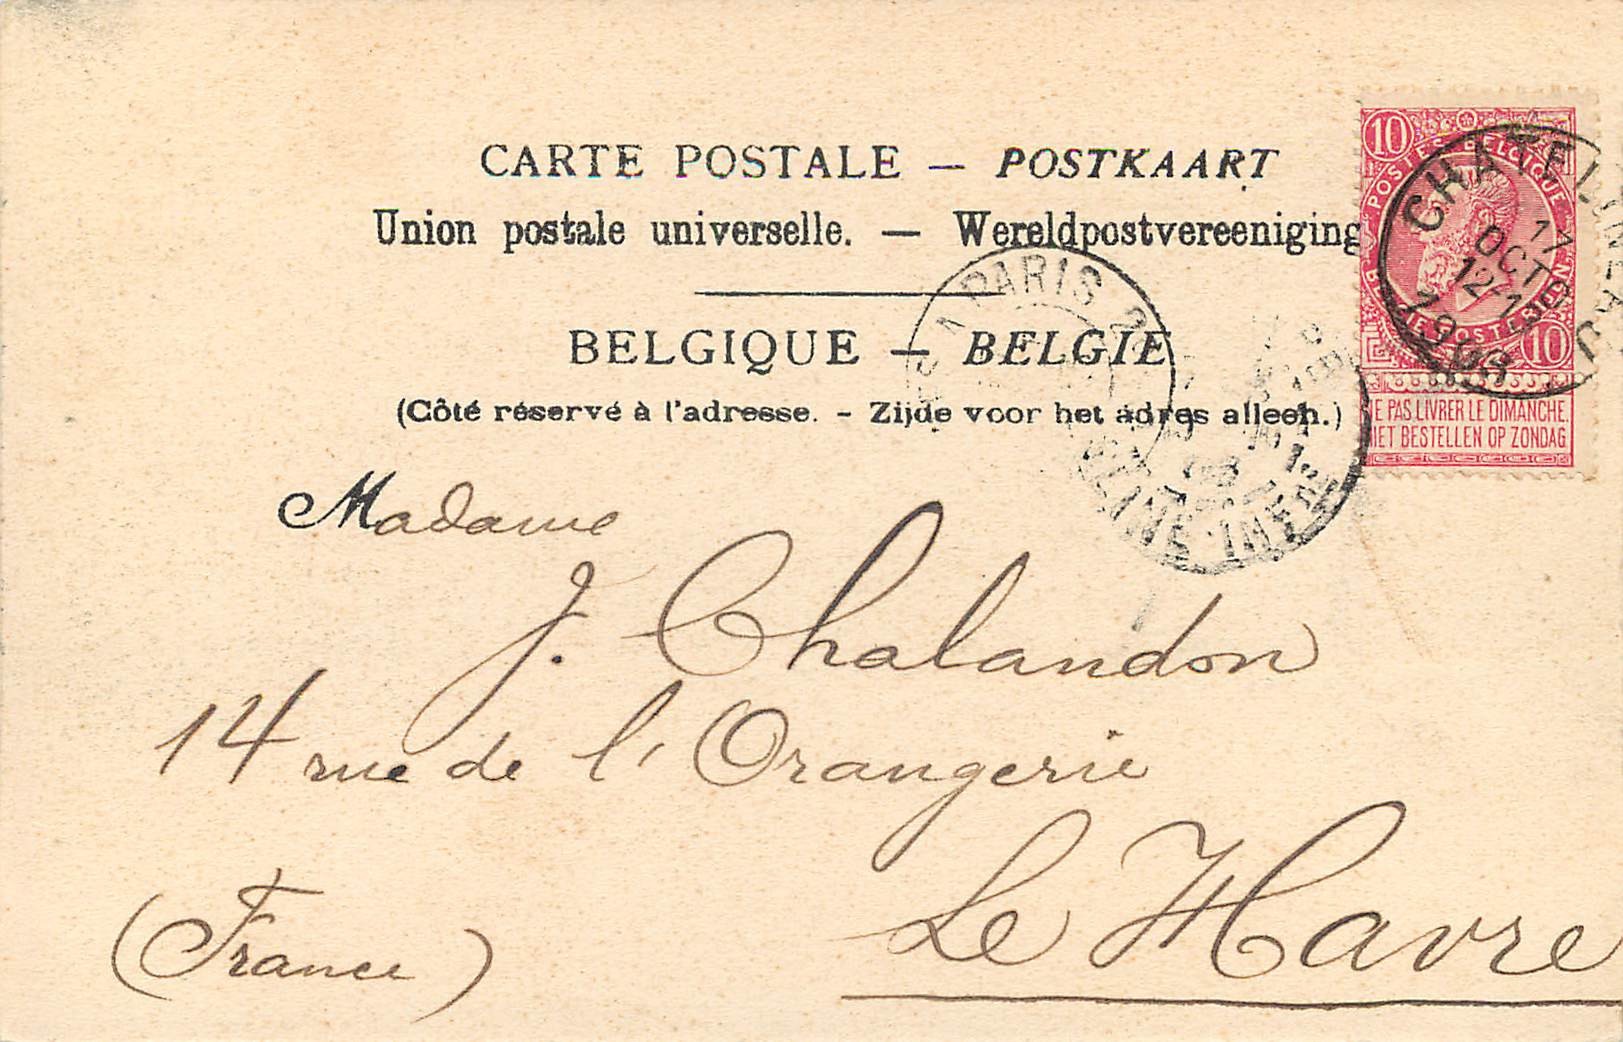 CARTE POSTALE — POSTKAART
Union postale universelle. — Wereldpostvereeniging
BELGIQUE — BELGIE
(Côté réservé à l'adresse. - Zijde voor het adres alleen.)
10
POSTES BELGIQUE
BELGIE POSTERIJEN
10
NE PAS LIVRER LE DIMANCHE.
NIET BESTELLEN OP ZONDAG
CHATELINEAU
17
OCT
12-
PARIS
Madame
J. Chalandon
14 rue de l'Orangerie
Le Havre
(France)